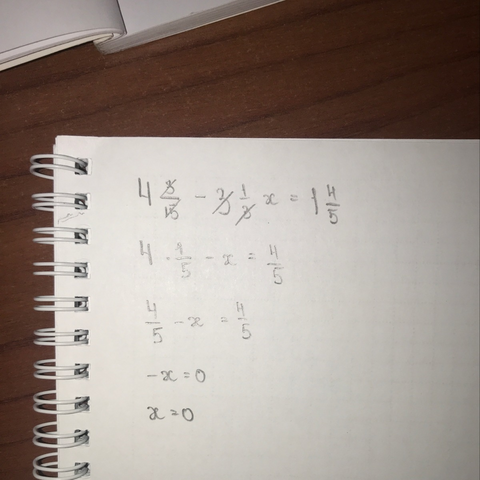 4 3/5 - 3 1/3 x = 1 4/5
4 · 1/5 - x = 4/5
4/5 - x = 4/5
-x = 0
x = 0